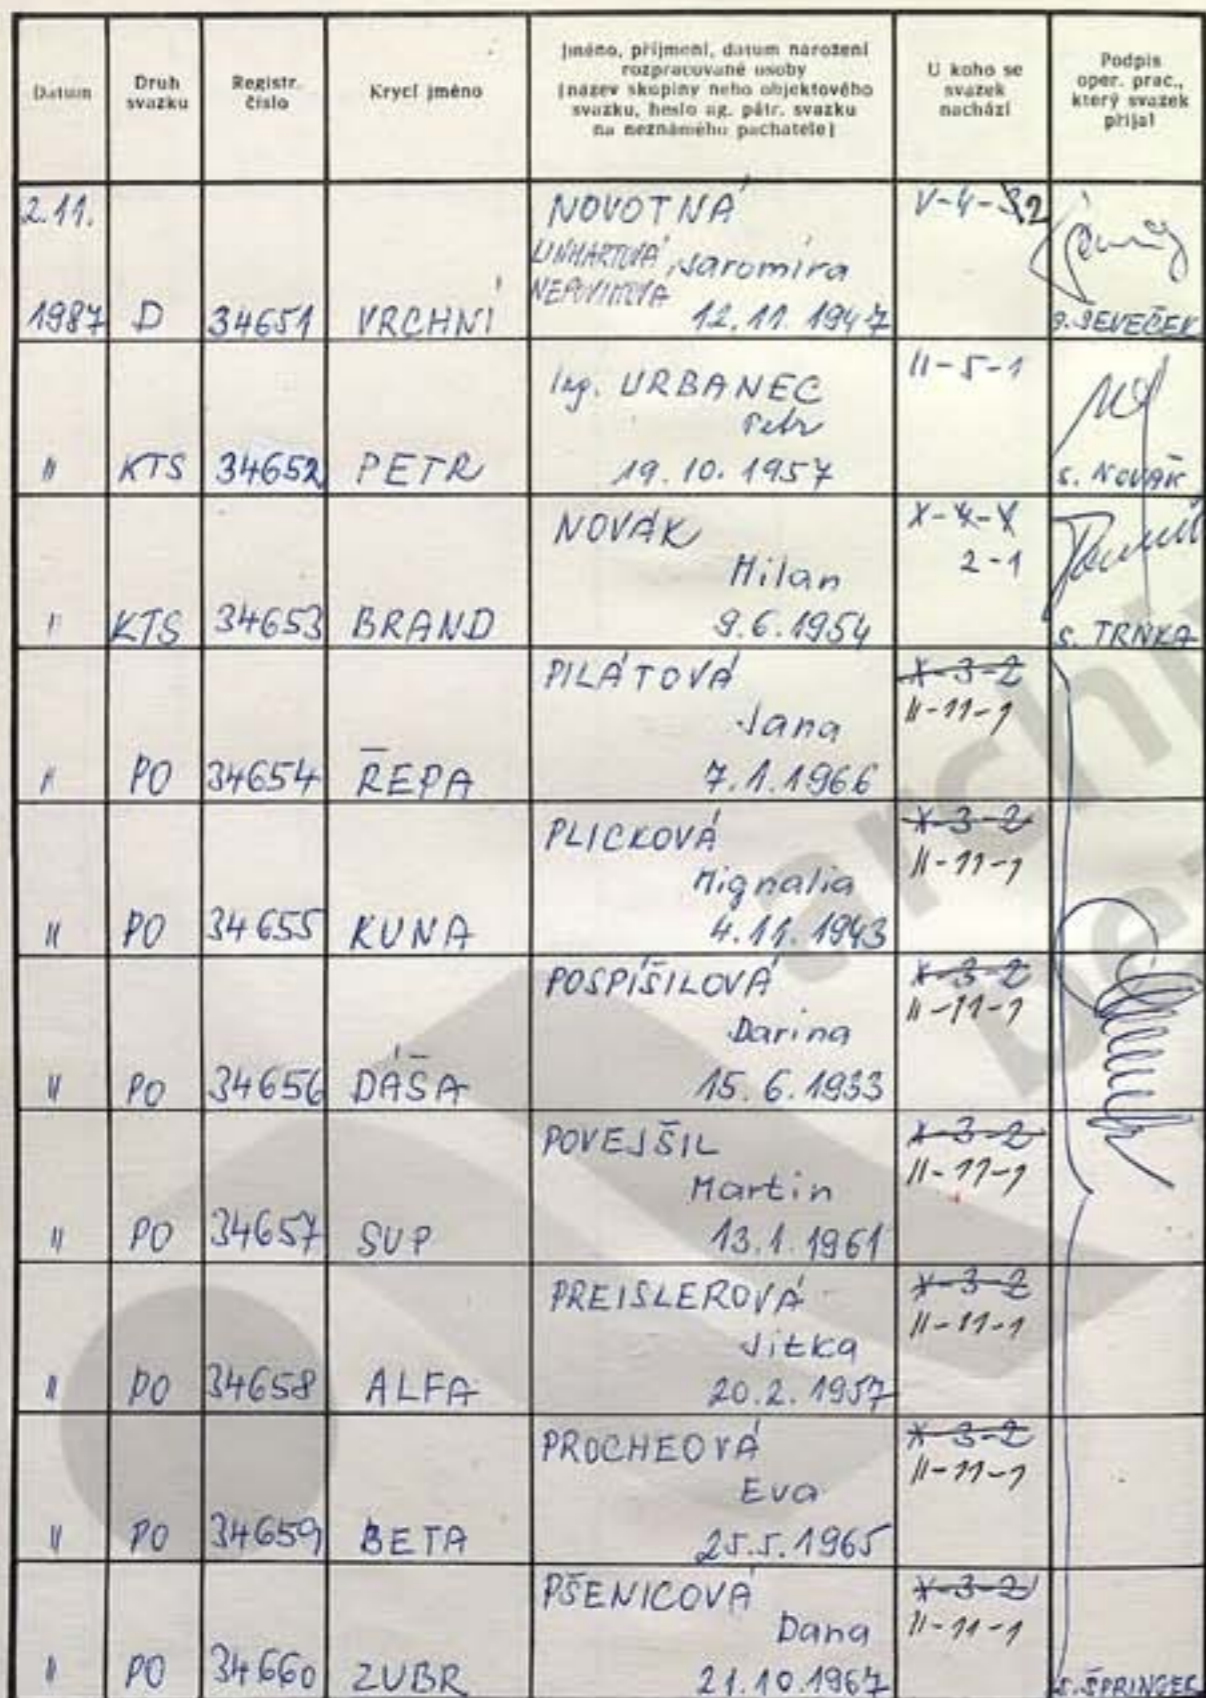 Datum
Druh
svazku
Registr.
číslo
Krycí jméno
Jméno, příjmení, datum narození
rozpracované osoby
(název skupiny nebo objektového
svazku, heslo ag. pátr. svazku
na neznámého pachatele)
U koho se
svazek
nachází
Podpis
oper. prac.,
který svazek
přijal
2.11.
1987 D 34651 VRCHNÍ
NOVOTNÁ
LINHARTOVÁ, Jaromíra
12.11.1947
V-4-2
S. ŠEVEČEK
" KTS 34652 PETR
Ing. URBANEC
Petr
19.10.1957
II-5-1
S. NOVÁK
" KTS 34653 BRAND
NOVÁK
Milan
9.6.1954
X-4-4
2-1
S. TRNKA
" PO 34654 ŘEPA
PILÁTOVÁ
Jana
7.1.1966
X-3-2
II-11-1
" PO 34655 KUNA
PLICKOVÁ
Mignalia
4.11.1943
X-3-2
II-11-1
" PO 34656 DÁŠA
POSPÍŠILOVÁ
Darina
15.6.1933
X-3-2
II-11-1
" PO 34657 SUP
POVEJŠIL
Martin
13.1.1961
X-3-2
II-11-1
" PO 34658 ALFA
PREISLEROVÁ
Jitka
20.2.1957
X-3-2
II-11-1
" PO 34659 BETA
PROCHEOVÁ
Eva
25.5.1965
X-3-2
II-11-1
" PO 34660 ZUBR
PŠENICOVÁ
Dana
21.10.1967
X-3-2
II-11-1
S. ŠPRINGEL